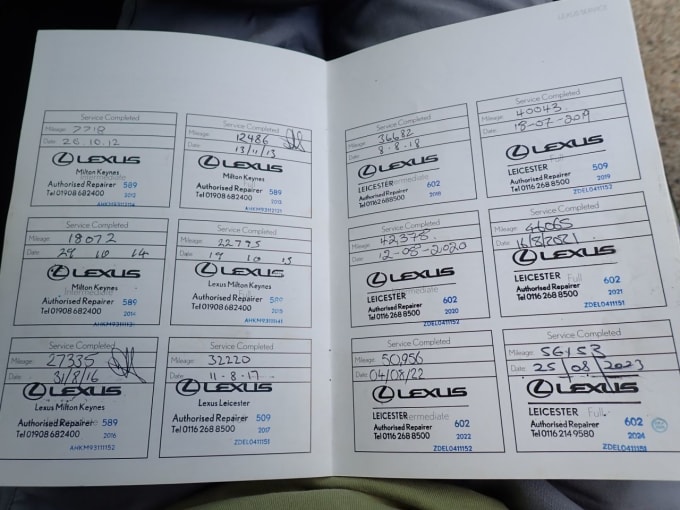 LEXUS SERVICE
Service Completed
Mileage: 7718
Date: 26.10.12
LEXUS
Milton Keynes
Intermediate
Authorised Repairer 589
Tel 01908 682400 2012
Service Completed
Mileage: 12486
Date: 13/11/13
LEXUS
Milton Keynes
Authorised Repairer 589
Tel 01908 682400 2013
Service Completed
Mileage: 18072
Date: 29 10 14
LEXUS
Milton Keynes
Intermediate
Authorised Repairer 589
Tel 01908 682400 2014
Service Completed
Mileage: 22795
Date: 19 10 15
LEXUS
Milton Keynes
Full
Authorised Repairer 589
Tel 01908 682400
Service Completed
Mileage: 27335
Date: 31/8/16
LEXUS
Lexus Milton Keynes
Authorised Repairer 589
Tel 01908 682400 2016
AHKM93111152
Service Completed
Mileage: 32220
Date: 11-8-17
LEXUS
Lexus Leicester
Authorised Repairer 509
Tel 0116 268 8500 2017
ZDEL0411151
Service Completed
Mileage: 36682
Date: 8-8-18
LEXUS
LEICESTER Intermediate
Authorised Repairer 602
Tel 0116 268 8500 2018
Service Completed
Mileage: 40043
Date: 18-07-2019
LEXUS
LEICESTER 509
Authorised Repairer 2019
Tel 0116 268 8500 ZDEL0411152
Service Completed
Mileage: 42,378
Date: 12-08-2020
LEXUS
LEICESTER Intermediate
Authorised Repairer 602
Tel 0116 268 8500 2020
ZDEL0411152
Service Completed
Mileage: 46065
Date: 16/8/2021
LEXUS
LEICESTER Full
Authorised Repairer 602
Tel 0116 268 8500 2021
ZDEL0411151
Service Completed
Mileage: 50,956
Date: 04/08/22
LEXUS
LEICESTER Intermediate
Authorised Repairer 602
Tel 0116 268 8500 2022
ZDEL0411152
Service Completed
Mileage: 56153
Date: 25/08/2023
LEXUS
LEICESTER Full
Authorised Repairer 602
Tel 0116 214 9580 2024
ZDEL0411151